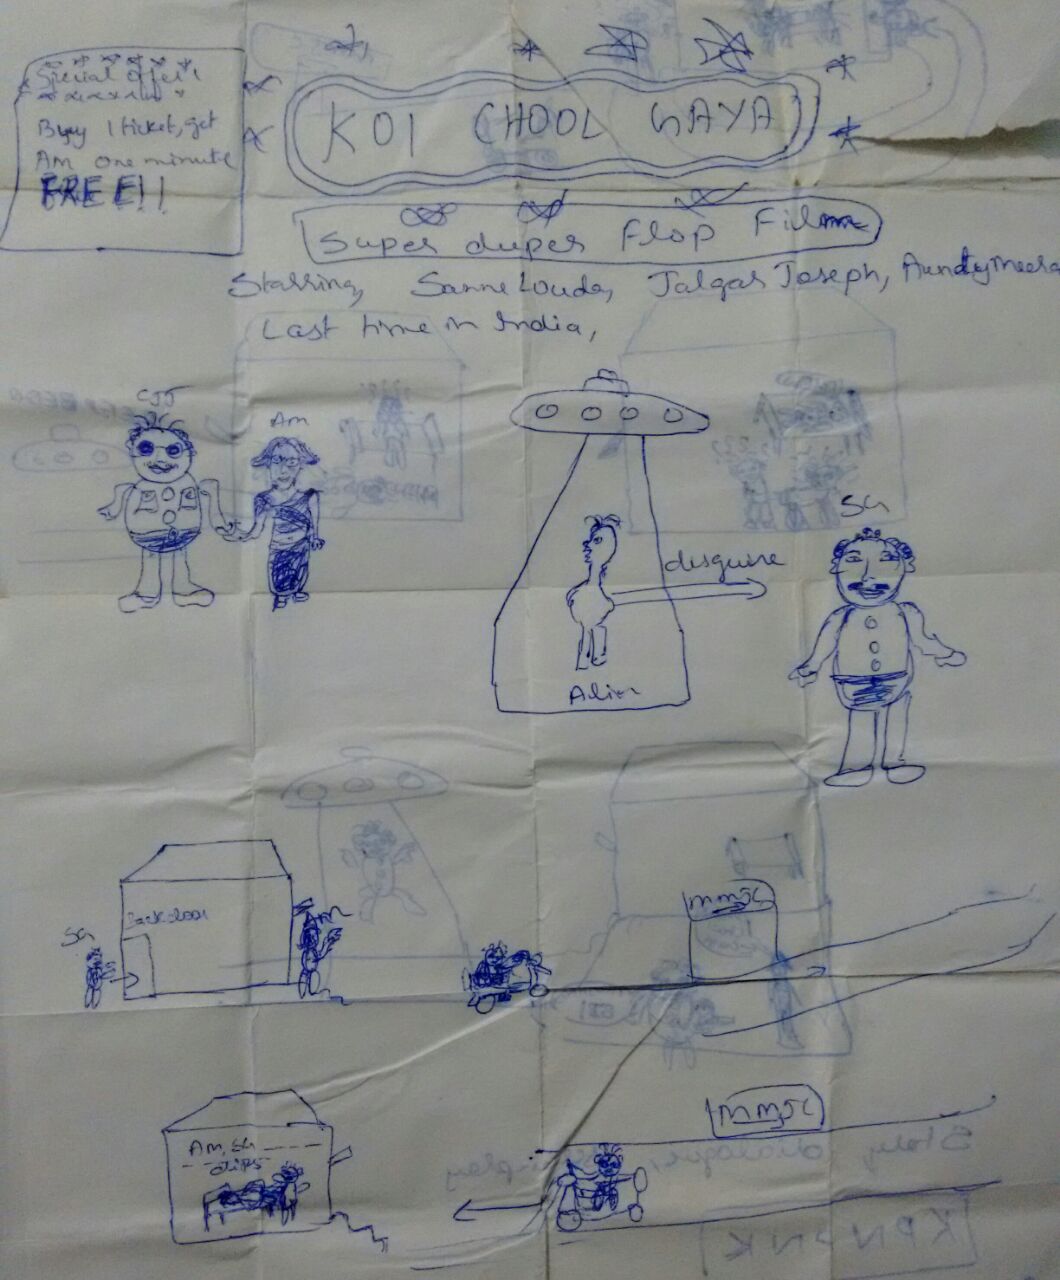 Special offer!
Buy 1 ticket, get
Am one minute
FREE!!
KOI CHOOL GAYA
Super duper Flop Film
Starring, Sanne Louda, Jalgas Joseph, Aundymeera
Last time in India,
CJJ
Am
SG
disguise
Alien
SG
Back door
Am
MMJC
Am, SG
clips
MMJC
Story dialogue,
KPN